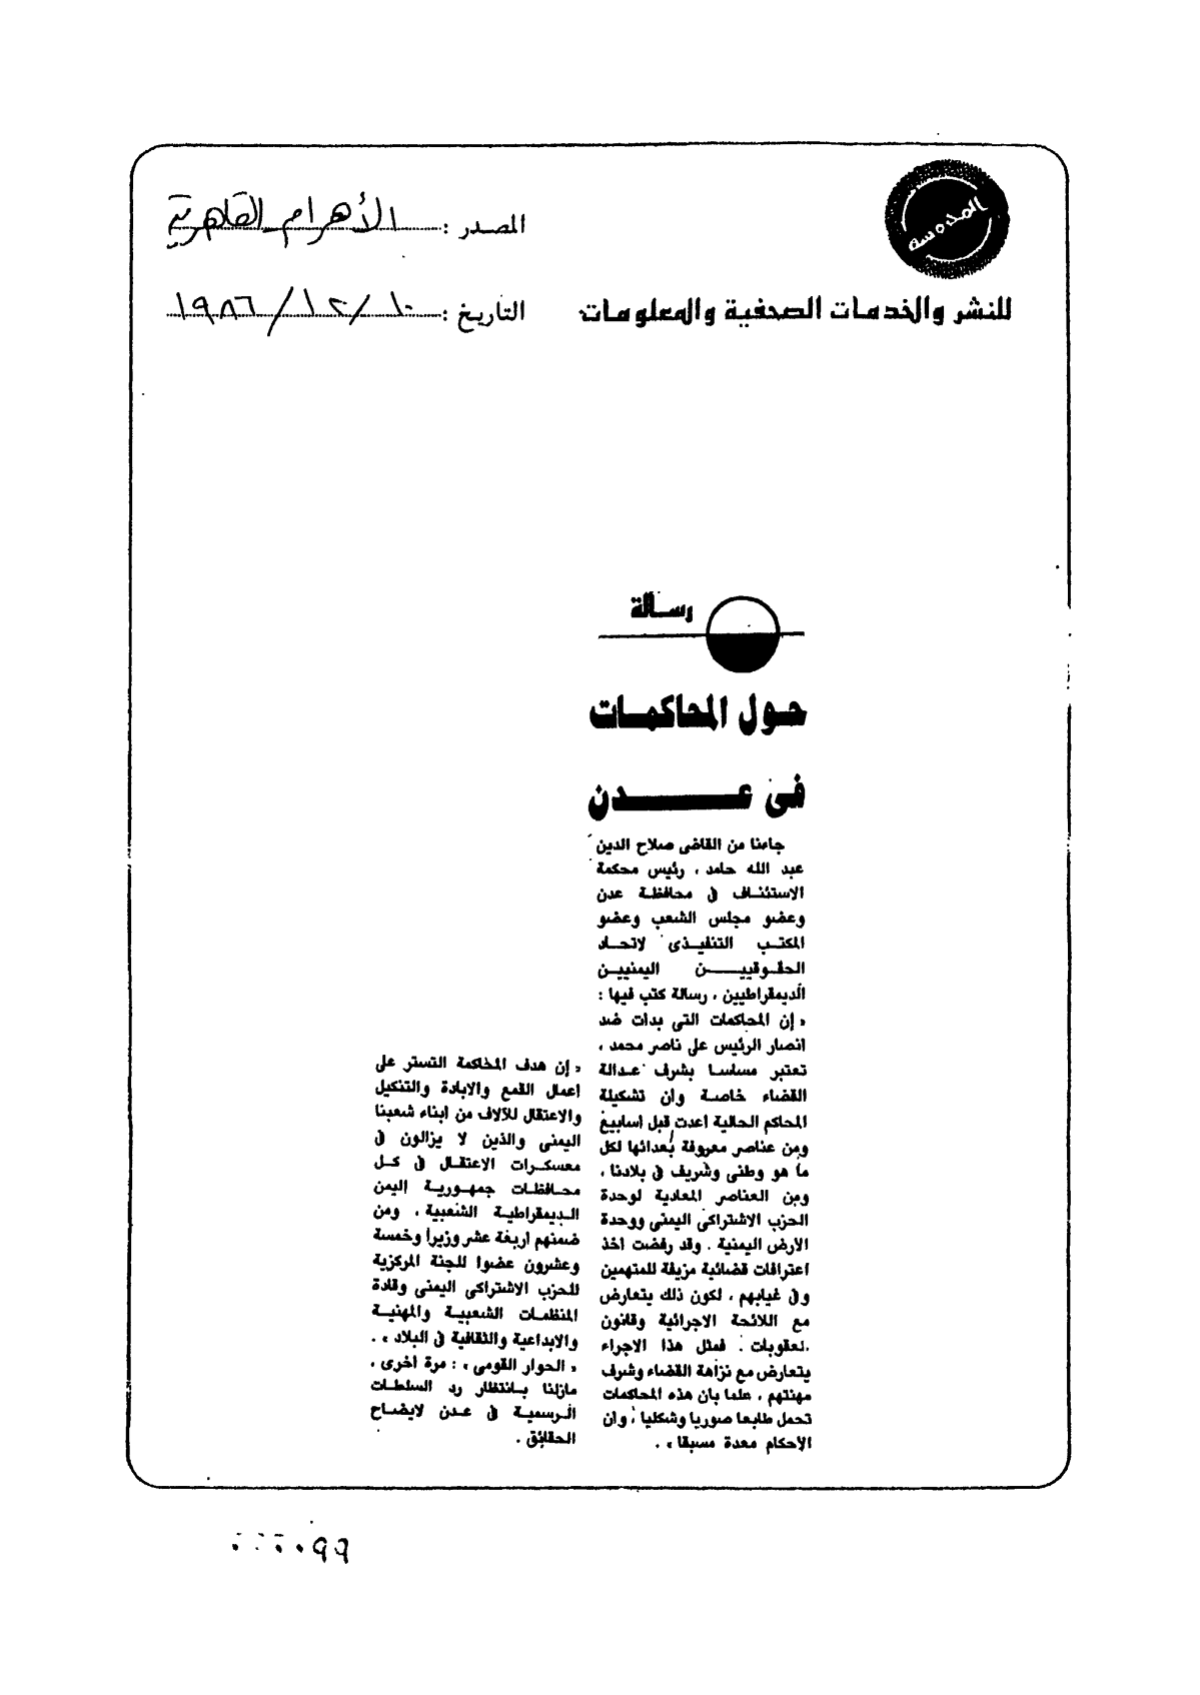 المصدر : الأهرام القاهرية
التاريخ : ١٠/١٢/١٩٨٦
للنشر والخدمات الصحفية والمعلومات
رسالة
حول المحاكمات
فى عدن
جاءنا من القاضى صلاح الدين
عبد الله حامد ، رئيس محكمة
الاستئناف فى محافظة عدن
وعضو مجلس الشعب وعضو
المكتب التنفيذى لاتحاد
الحقوقيين اليمنيين
الديمقراطيين ، رسالة كتب فيها :
« إن المحاكمات التى بدات ضد
انصار الرئيس على ناصر محمد ،
تعتبر مساسا بشرف عدالة
القضاء خاصة وان تشكيلة
المحاكم الحالية اعدت قبل اسابيع
ومن عناصر معروفة بعدائها لكل
ما هو وطنى وشريف فى بلادنا ،
ومن العناصر المعادية لوحدة
الحزب الاشتراكى اليمنى ووحدة
الارض اليمنية . وقد رفضت اخذ
اعترافات قضائية مزيفة للمتهمين
وفى غيابهم ، لكون ذلك يتعارض
مع اللائحة الاجرائية وقانون
لعقوبات . فمثل هذا الاجراء
يتعارض مع نزاهة القضاء وشرف
مهنتهم ، علما بان هذه المحاكمات
تحمل طابعا صوريا وشكليا ، وان
الاحكام معدة مسبقا » .
« إن هدف المحاكمة التستر على
اعمال القمع والابادة والتنكيل
والاعتقال للآلاف من ابناء شعبنا
اليمنى والذين لا يزالون فى
معسكرات الاعتقال فى كل
محافظات جمهورية اليمن
الديمقراطية الشعبية ، ومن
ضمنهم اربعة عشر وزيرا وخمسة
وعشرون عضوا للجنة المركزية
للحزب الاشتراكى اليمنى وقادة
المنظمات الشعبية والمهنية
والابداعية والثقافية فى البلاد » .
« الحوار القومى » : مرة اخرى ،
مازلنا بانتظار رد السلطات
الرسمية فى عدن لايضاح
الحقائق .